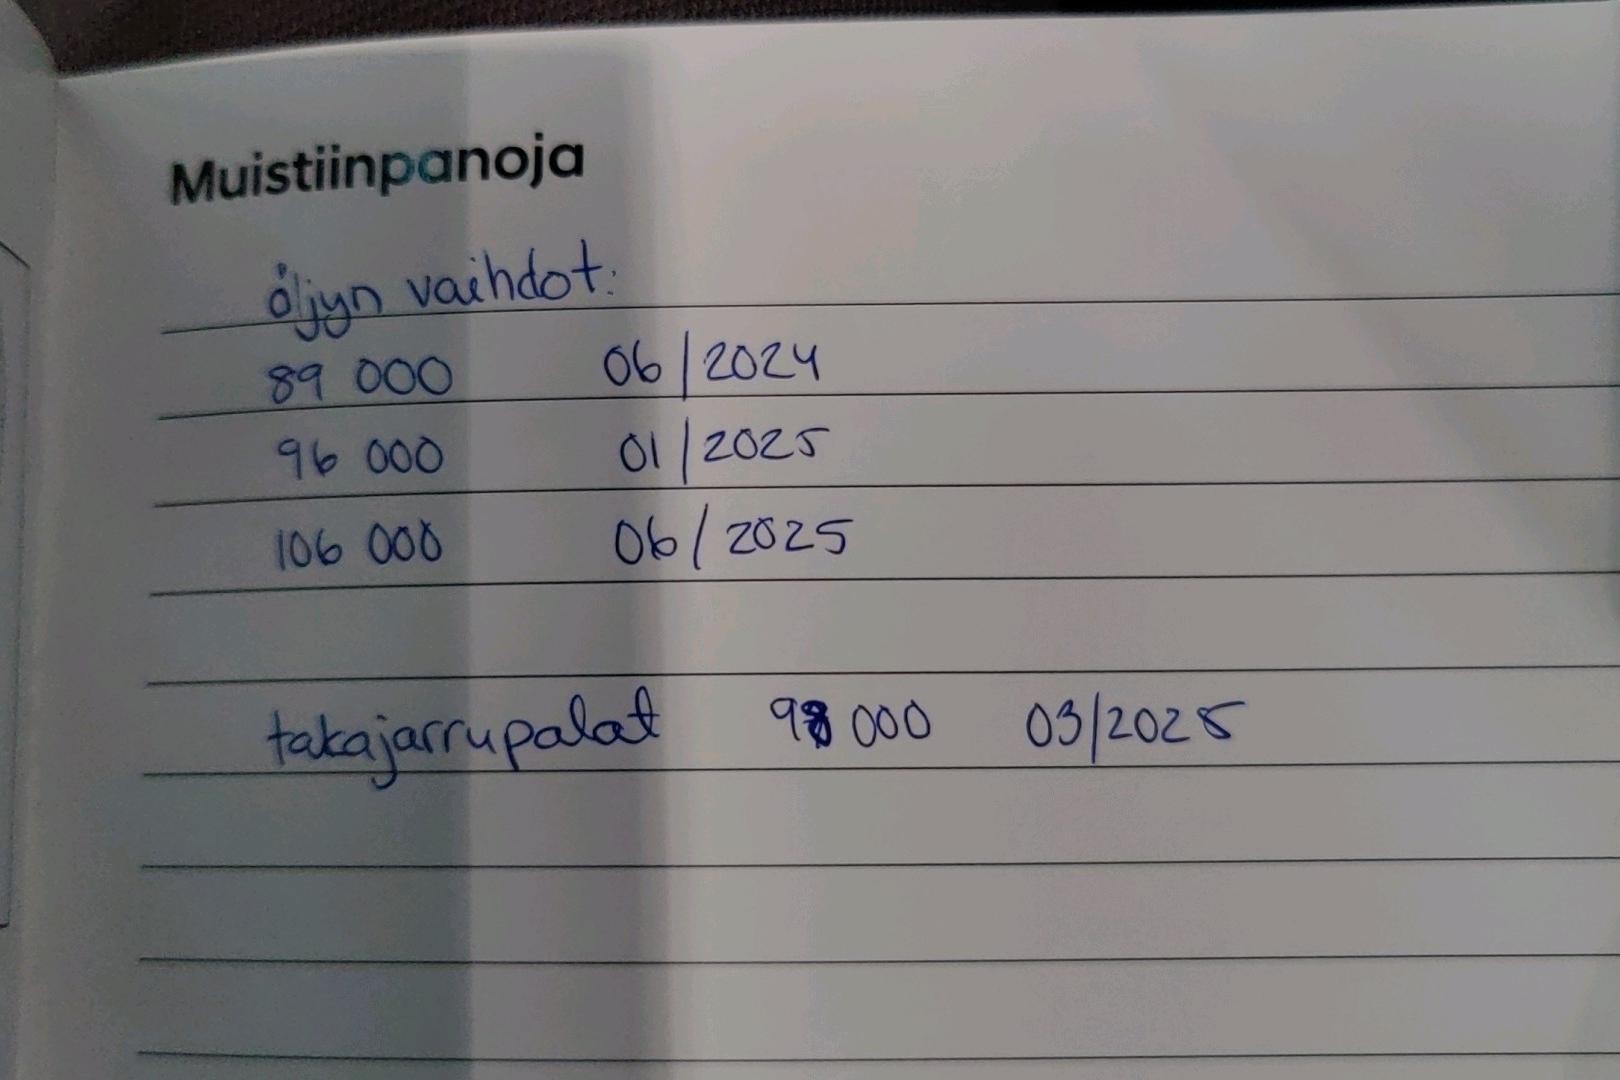 Muistiinpanoja
öljyn vaihdot:
89 000 06/2024
96 000 01/2025
106 000 06/2025
takajarrupalat 98 000 03/2025